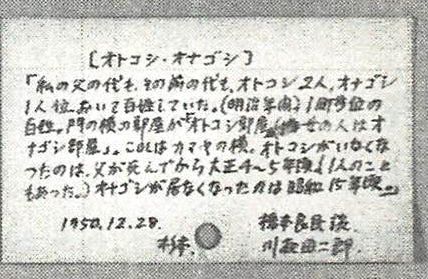 [オトコシ・オナゴシ]
「私の父の代も、その前の代も、オトコシ2人、オナゴシ
1人位、おいて百姓していた。(明治年間)1町 位の
百姓。門の横の部屋が「オトコシ部屋」 の人はオ
ナゴシ部屋」。これはカマヤの横。オトコシがいなくな
ったのは、父が死んでから大正4〜5年頃(1人のこと
もあった。)オナゴシが居なくなったのは昭和15年頃。」
1950.12.28. 橋本 談
杉本 川 二郎